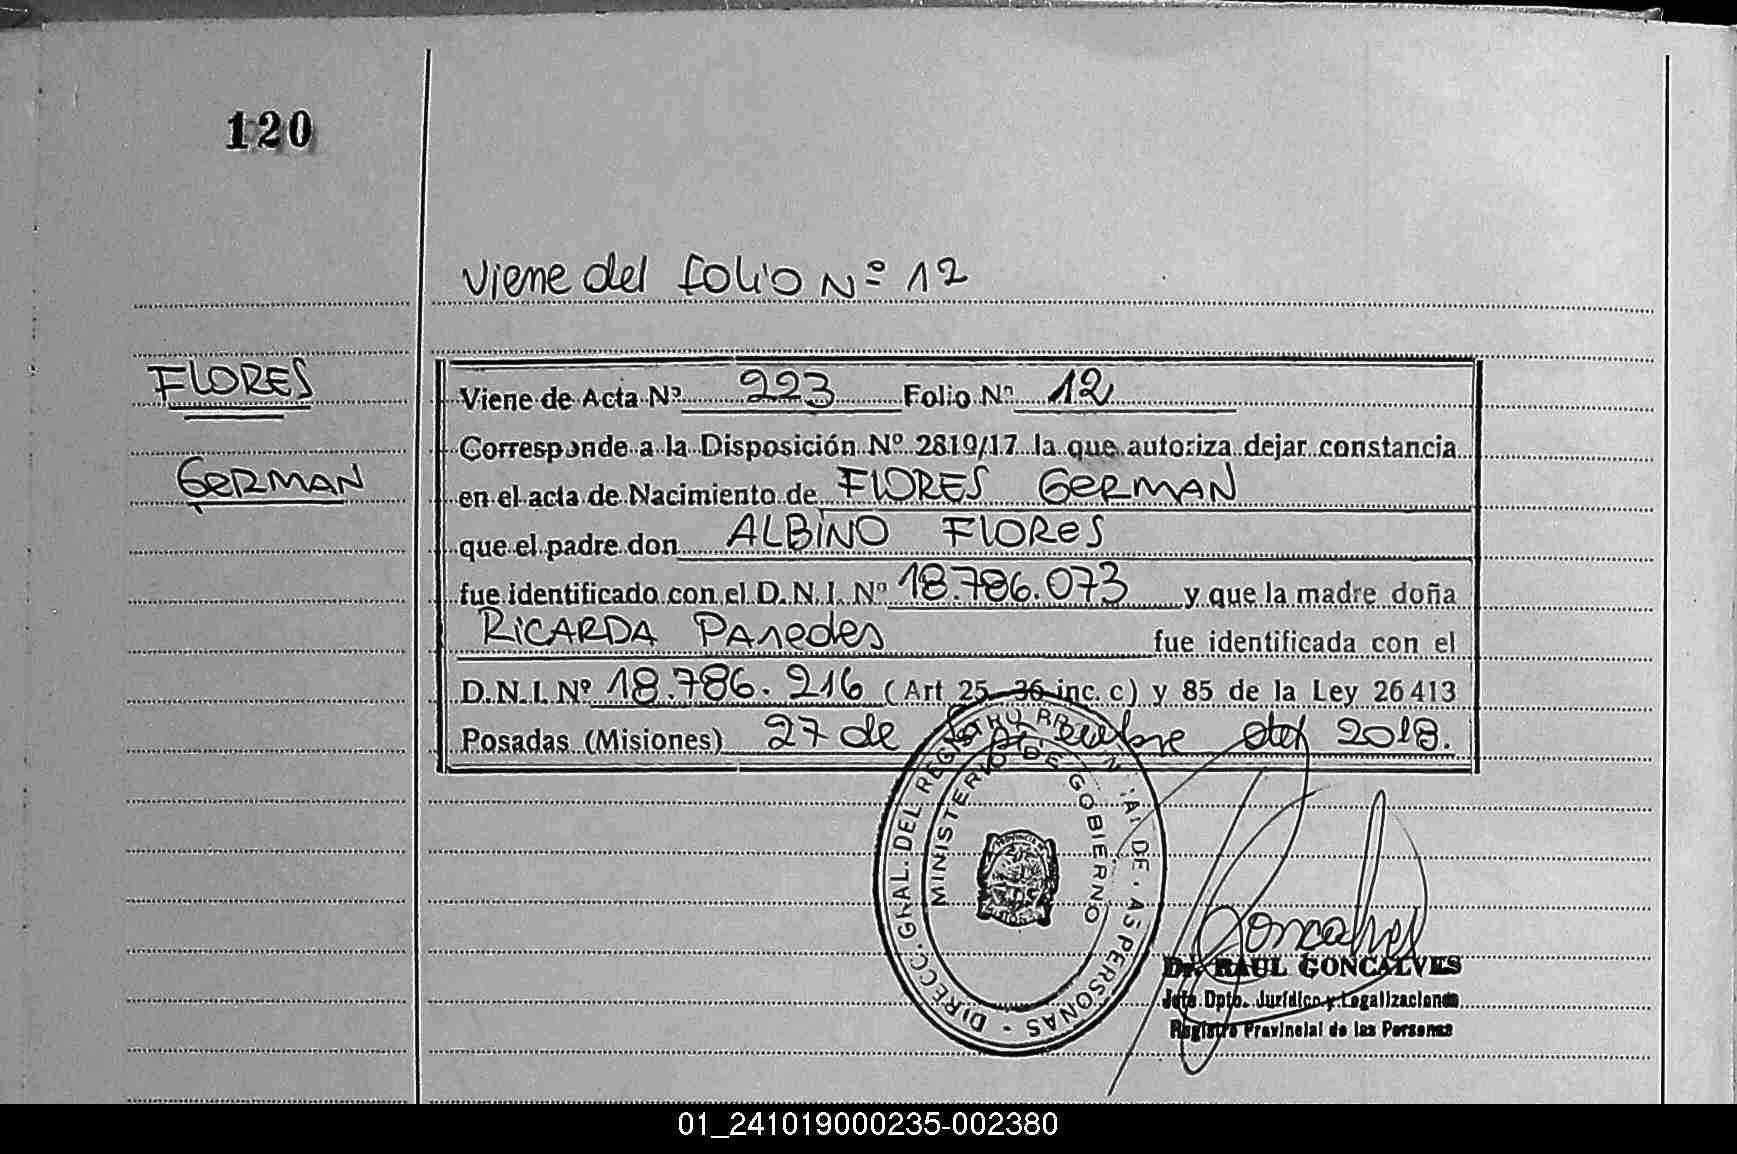 120
Viene del folio Nº 12
FLORES
GERMAN
Viene de Acta Nº 223 Folio Nº 12
Corresponde a la Disposición Nº 2819/17 la que autoriza dejar constancia
en el acta de Nacimiento de FLORES GERMAN
que el padre don ALBINO FLORES
fue identificado con el D.N.I. Nº 18.786.073 y que la madre doña
RICARDA PAREDES fue identificada con el
D.N.I. Nº 18.786.216 (Art 25, 36 inc. c) y 85 de la Ley 26413
Posadas (Misiones) 27 de del 2018.
DIRECC. GRAL. DEL REGISTRO DE PERSONAS
MINISTERIO DE GOBIERNO
Dr. RAUL GONCALVES
Jefe Dpto. Jurídico y Legalizaciones
Registro Provincial de las Personas
01_241019000235-002380